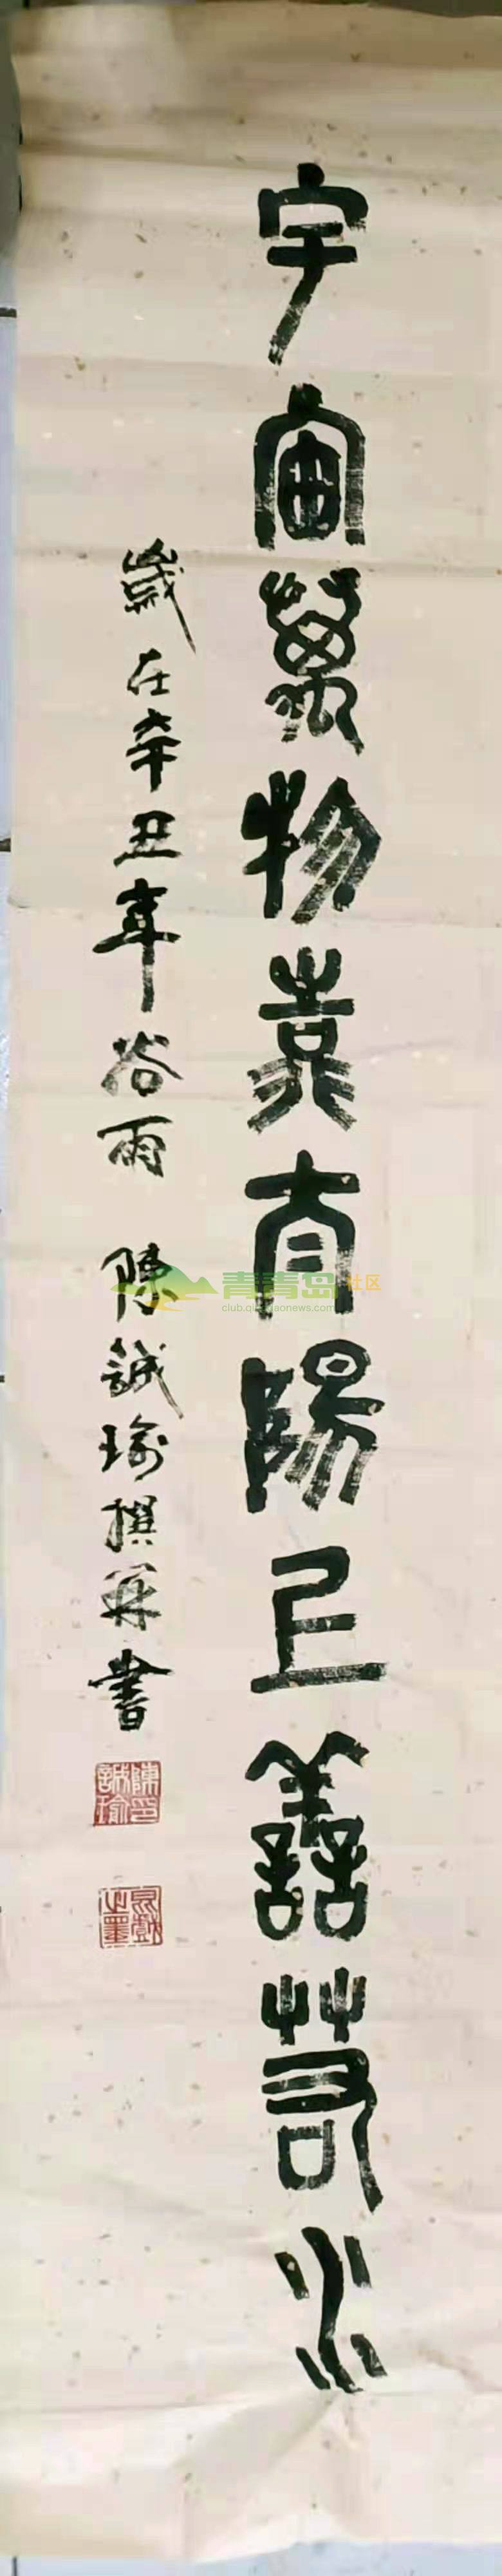 宇宙萬物靠太陽上善若水
歲在辛丑年谷雨 陳誠瑜撰并書
陳印誠瑜
青青岛社区
club.qingdaonews.com